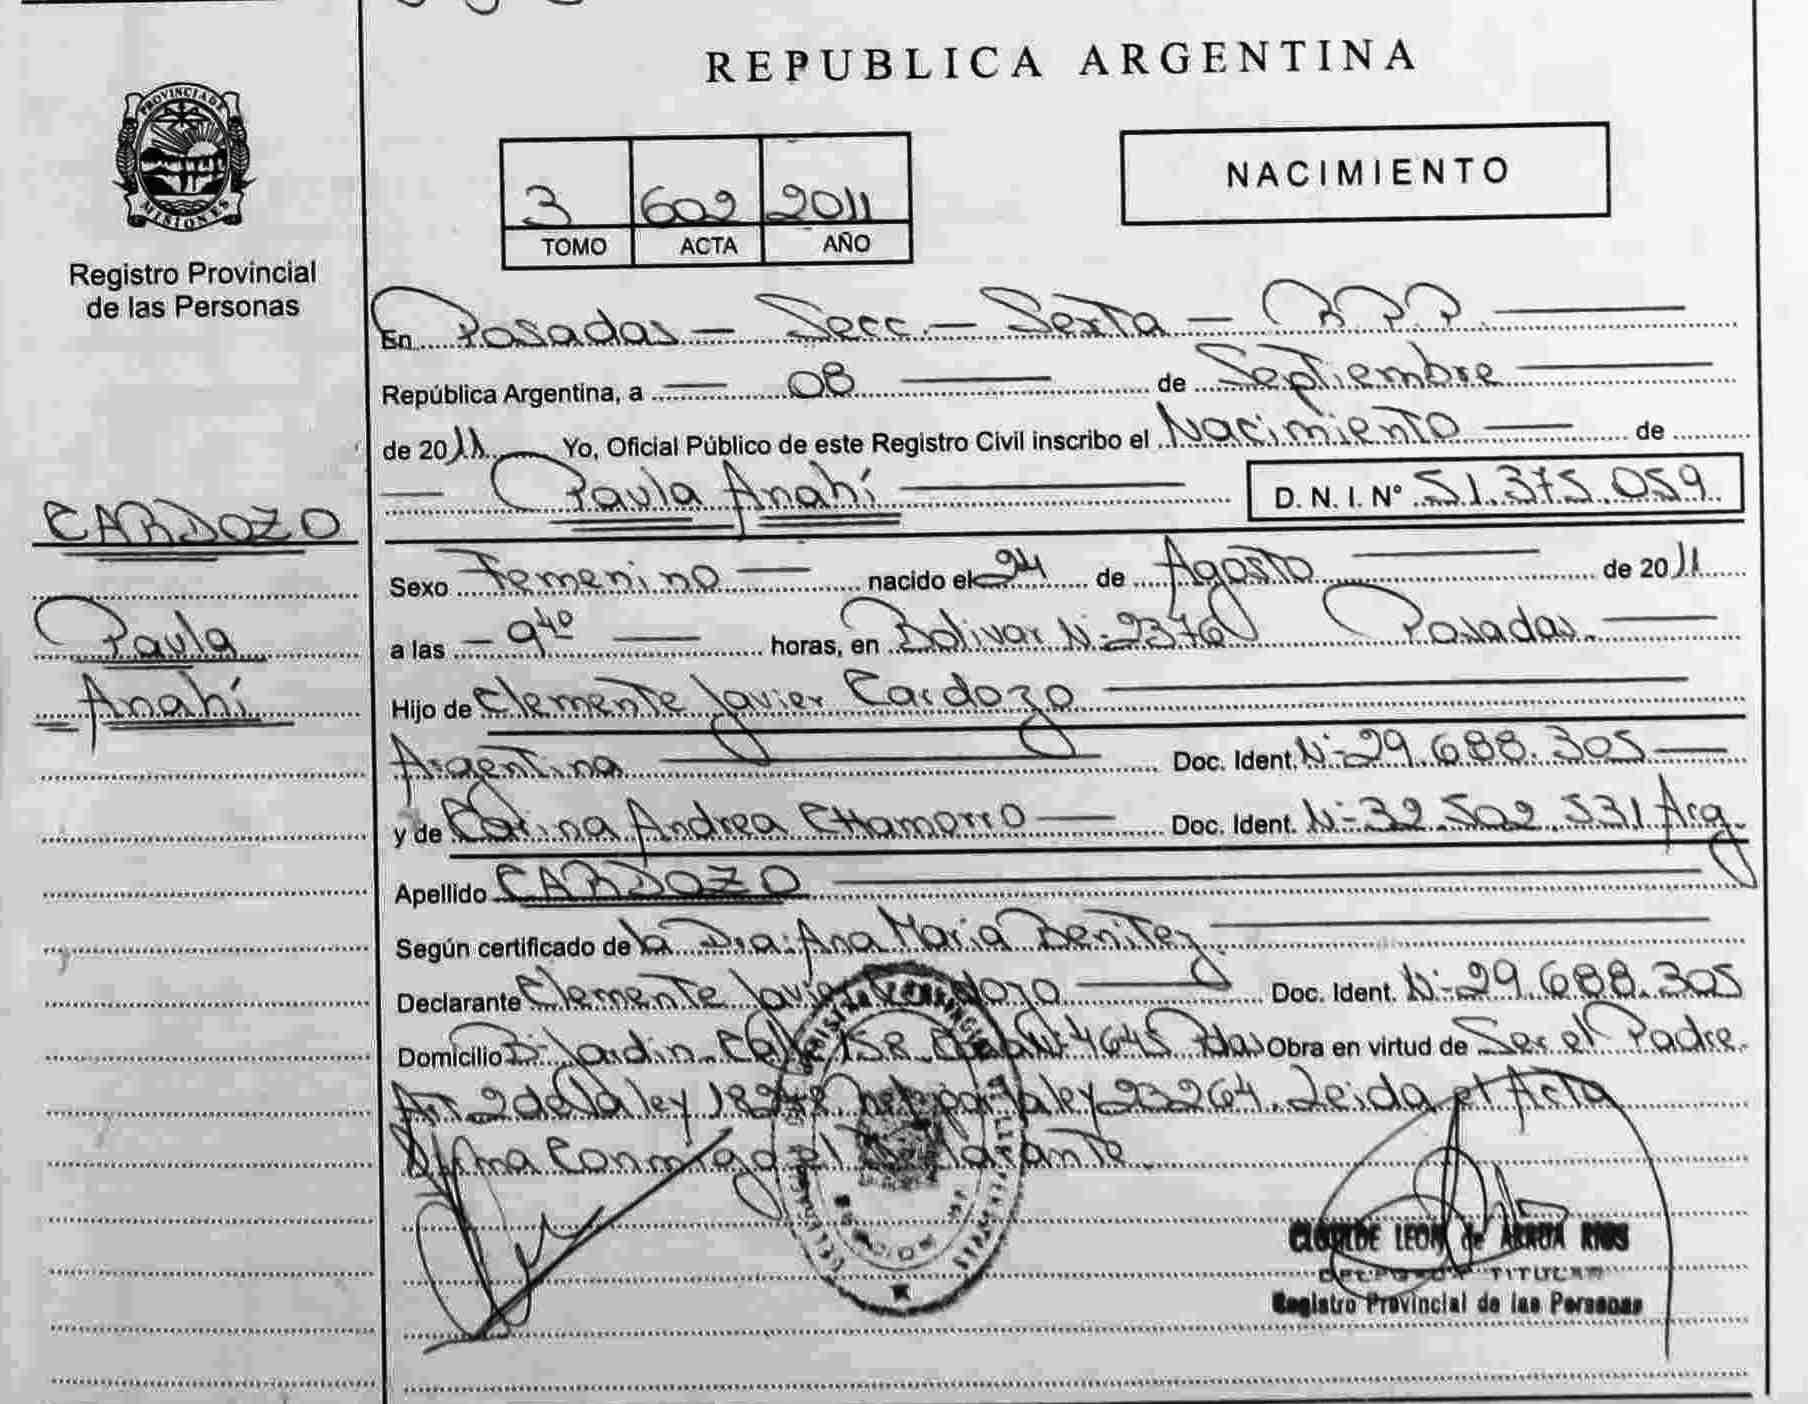 REPUBLICA ARGENTINA
PROVINCIA DE
MISIONES
Registro Provincial
de las Personas
NACIMIENTO
3 602 2011
TOMO ACTA AÑO
En Posadas — Secc. — Sexta — R P P
República Argentina, a — 08 — de Septiembre —
de 2011 Yo, Oficial Público de este Registro Civil inscribo el Nacimiento — de
— Paula Anahí — D. N. I. Nº 51.375.059
CARDOZO
Paula
Anahí
Sexo Femenino — nacido el 24 de Agosto — de 2011
a las — 9 40 — horas, en Bolivar N- 2376 Posadas. —
Hijo de Clemente Javier Cardozo —
Argentina — Doc. Ident. N- 29.688.305 —
y de Carina Andrea CHamorro — Doc. Ident. N- 32.502.531 Arg.
Apellido CARDOZO —
Según certificado de la Dra: Ana Maria Benitez —
Declarante Clemente Javier Cardozo — Doc. Ident. N- 29.688.305
Domicilio Bº Jardin N- 4645 Pdas Obra en virtud de Ser el Padre.
Art 2 de la ley 18248 ley 23264. Leida el Acta
firma Conmigo el Declarante.
CLOTILDE LEON de ARRUA RIOS
DELEGADA TITULAR
Registro Provincial de las Personas